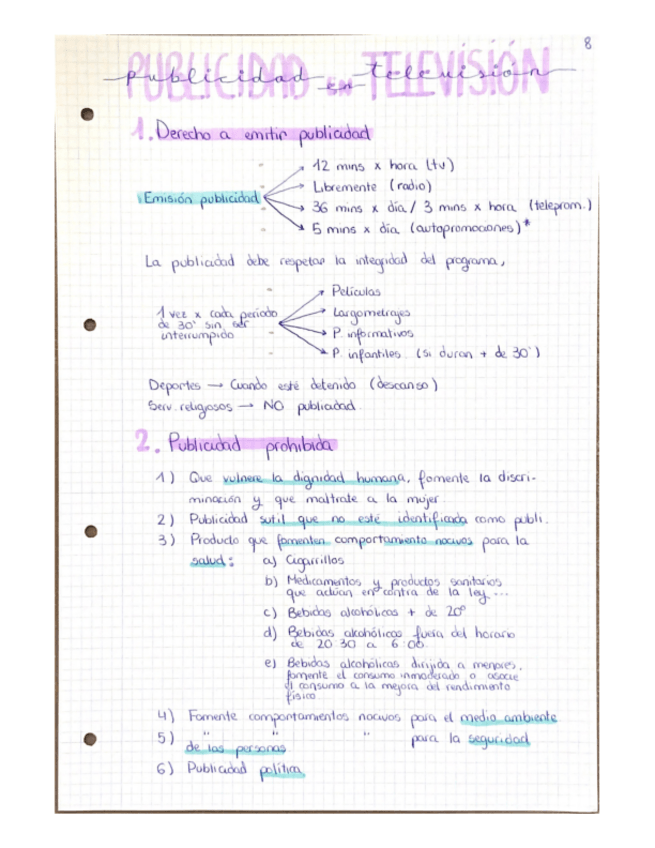 8
PUBLICIDAD en TELEVISIÓN
publicidad en televisión
1. Derecho a emitir publicidad
12 mins x hora (tv)
Emisión publicidad
Libremente (radio)
36 mins x día / 3 mins x hora (teleprom.)
5 mins x día (autopromociones)*
La publicidad debe respetar la integridad del programa,
1 vez x cada período
de 30' sin ser
interrumpido
Películas
Largometrajes
P. informativos
P. infantiles (si duran + de 30')
Deportes → Cuando esté detenido (descanso)
Serv. religiosos → NO publicidad.
2. Publicidad prohibida
1) Que vulnere la dignidad humana, fomente la discri-
minación y que maltrate a la mujer.
2) Publicidad sutil que no esté identificada como publi.
3) Producto que fomenten comportamiento nocivos para la
salud: a) Cigarrillos
b) Medicamentos y productos sanitarios
que actúan en contra de la ley...
c) Bebidas alcohólicas + de 20º
d) Bebidas alcohólicas fuera del horario
de 20:30 a 6:00.
e) Bebidas alcohólicas dirijida a menores,
fomente el consumo inmoderado o asocie
el consumo a la mejora del rendimiento
físico.
4) Fomente comportamientos nocivos para el medio ambiente
5) " " " para la seguridad
de las personas
6) Publicidad política.